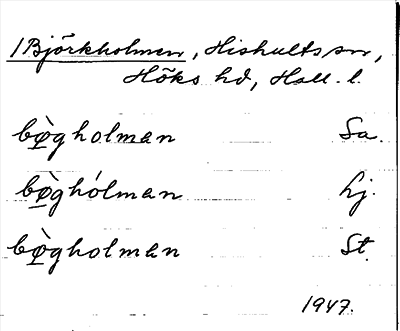 /Björkholmen, Hishults sn,
Höks hd, Hall. l.
bø̀gholman Sa.
bø̀ghólman Lj.
bø̀gholman St.
1947.